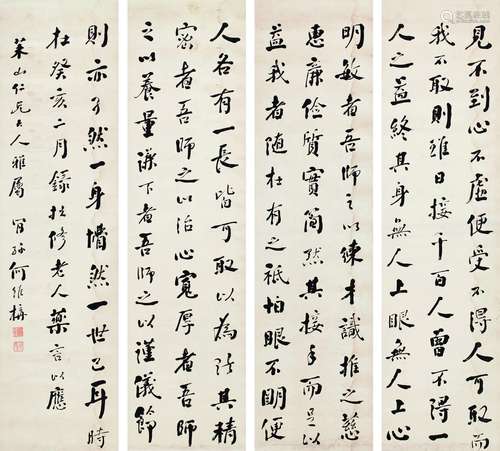 見不到心不虛便受不得人可取而
我不取則雖日接千百人曾不得一
人之益終其身無人上眼無人上心
明敏者吾師之以練才識推之慈
惠廉儉質實簡默其接手而足以
益我者隨在有之祗怕眼不明便
人各有一長皆可取以為法其精
密者吾師之以治心寬厚者吾師
之以養量謙下者吾師之以謹儀節
則亦孑然一身懵然一世已耳時
在癸亥二月錄拙修老人藥言以應
萊山仁兄大人雅屬 詩孫何維樸